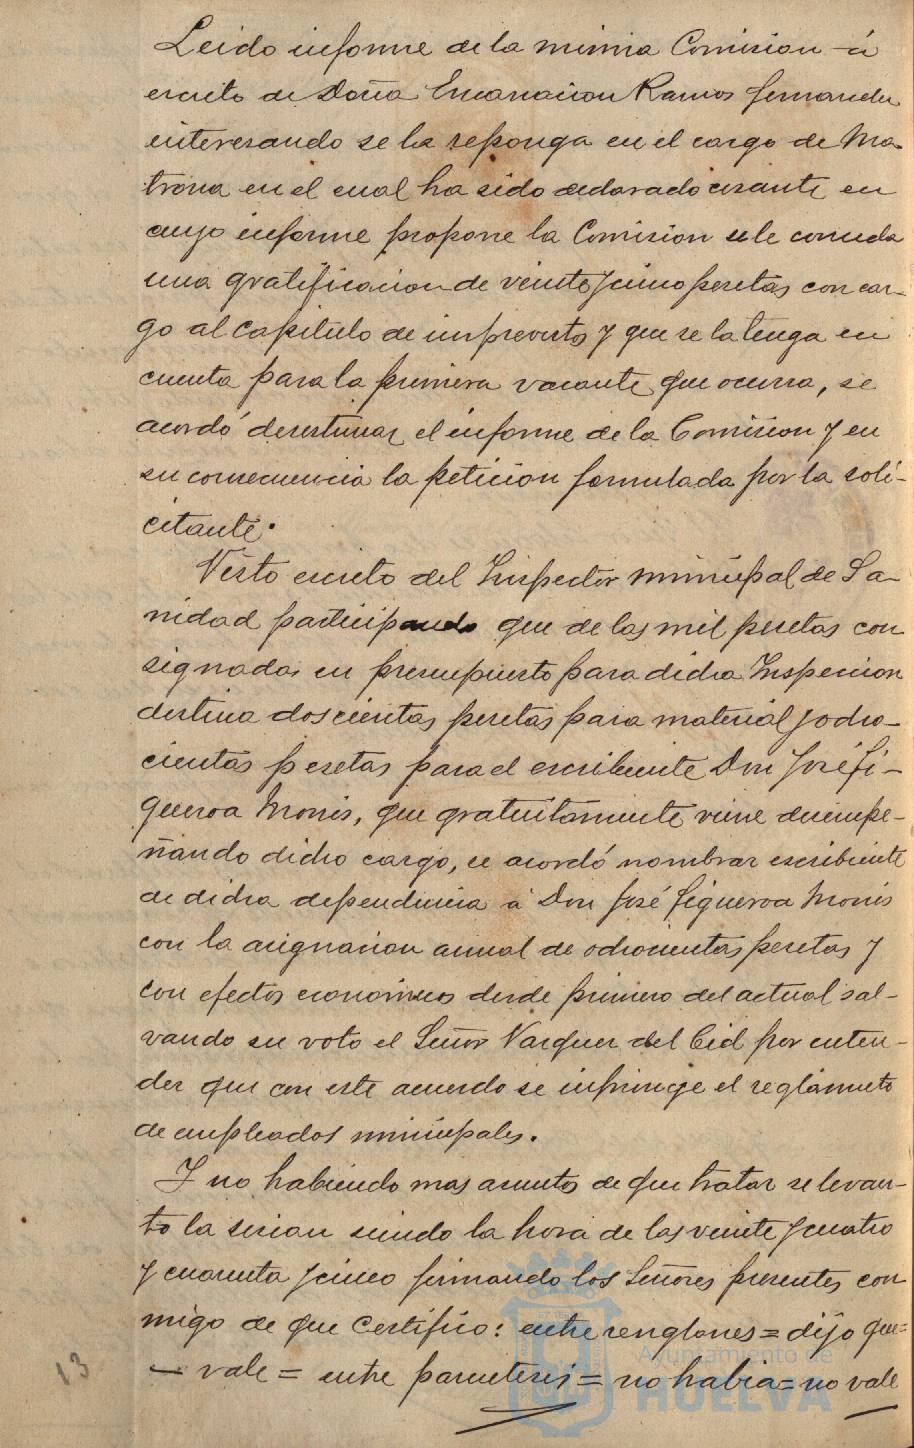 Leido informe de la misma Comision á
escrito de Doña Encarnacion Ramos Fernandez
interesando se la reponga en el cargo de Ma-
trona en el cual ha sido declarado cesante en
cuyo informe propone la Comision se le conceda
una gratificacion de veinte y cinco pesetas con car-
go al capitulo de imprevistos y que se la tenga en
cuenta para la primera vacante que ocurra, se
acordó desestimar el informe de la Comision y en
su consecuencia la peticion formulada por la soli-
citante.
Visto escrito del Inspector municipal de Sa-
nidad participando que de las mil pesetas con
signadas en presupuesto para dicha Inspeccion
destina doscientas pesetas para material y ocho-
cientas pesetas para el escribiente Don José Fi-
gueroa Monis, que gratuitamente viene desempe-
ñando dicho cargo, se acordó nombrar escribiente
de dicha dependencia á Don José Figueroa Monis
con la asignacion anual de ochocientas pesetas y
con efectos economicos desde primero del actual sal-
vando su voto el Señor Vazquez del Cid por enten-
der que con este acuerdo se infringe el reglamento
de empleados municipales.
Y no habiendo mas asuntos de que tratar se levan-
to la sesion siendo la hora de las veinte y cuatro
y cuarenta y cinco firmando los Señores presentes con
migo de que certifico: entre renglones = dijo que =
— vale = entre parentesis = no habia = no vale
13
Ayuntamiento de
HUELVA